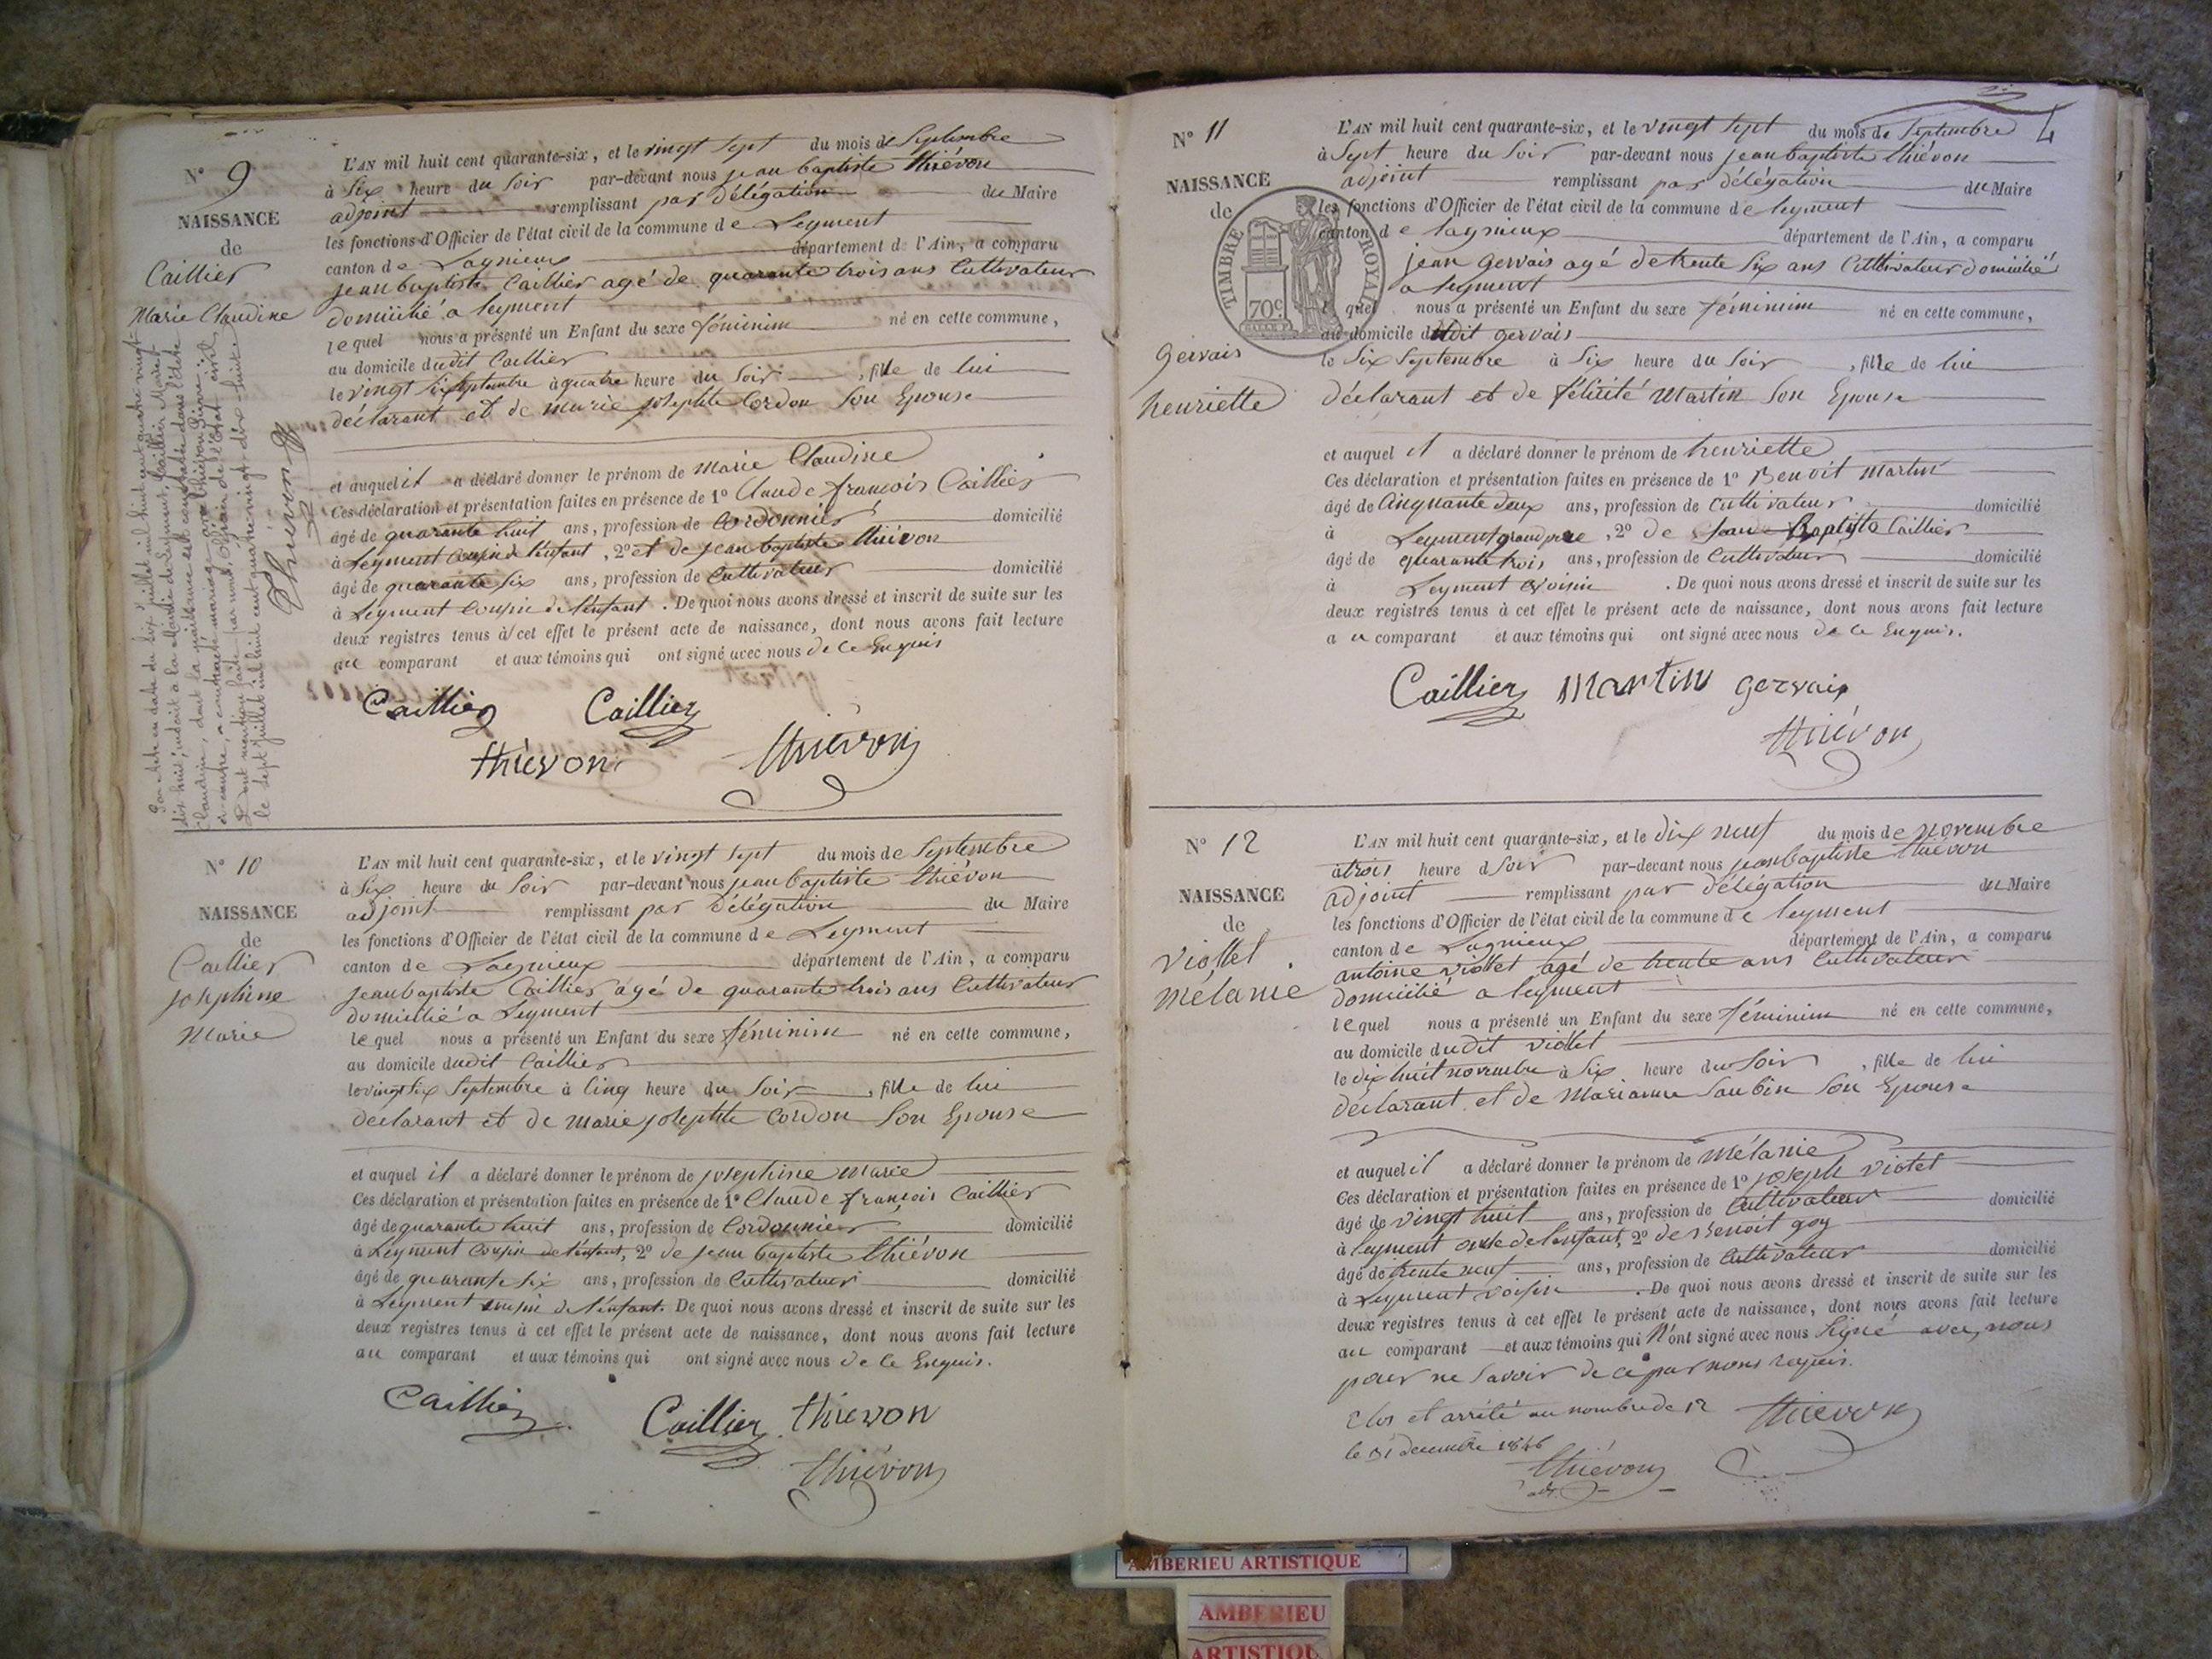 N° 9
NAISSANCE
de
Caillier
Marie Claudine
L'AN mil huit cent quarante-six, et le vingt sept du mois de Septembre
à Six heure du Soir par-devant nous jean baptiste thiévon
adjoint remplissant par délégation du Maire
les fonctions d'Officier de l'état civil de la commune de Leyment
canton de Lagnieux département de l'Ain, a comparu
jean baptiste Caillier agé de quarante trois ans Cultivateur
domicilié a leyment
le quel nous a présenté un Enfant du sexe féminim né en cette commune,
au domicile dudit Caillier
le vingt six Septembre à quatre heure du Soir, fille de lui
déclarant et de marie josephte Cordon Son Epouse
et auquel il a déclaré donner le prénom de marie Claudine
Ces déclaration et présentation faites en présence de 1° Claude françois Caillier
âgé de quarante huit ans, profession de Cordonnier domicilié
à Leyment Cousin de l'enfant, 2° et de jean baptiste thiévon
âgé de quarante six ans, profession de Cultivateur domicilié
à Leyment Cousin de l'enfant. De quoi nous avons dressé et inscrit de suite sur les
deux registres tenus à cet effet le présent acte de naissance, dont nous avons fait lecture
au comparant et aux témoins qui ont signé avec nous de ce Enquis
Caillier Caillier
thievon thiévon
Par acte en date du dix juillet mil huit cent quatre vingt
dix huit, inscrit à la Mairie de Leyment, Caillier Marie
Claudine, dont la naissance est constatée dans l'acte
ci contre, a contracté mariage avec Thievon Pierre.
Dont mention faite par nous, officier de l'état civil,
le sept juillet mil huit cent quatre vingt dix-huit.
Thievon
N° 10
NAISSANCE
de
Caillier
josephine
Marie
L'AN mil huit cent quarante-six, et le vingt sept du mois de Septembre
à Six heure du Soir par-devant nous jean baptiste thiévon
adjoint remplissant par délégation du Maire
les fonctions d'Officier de l'état civil de la commune de Leyment
canton de Lagnieux département de l'Ain, a comparu
jean baptiste Caillier agé de quarante trois ans Cultivateur
domicilié a Leyment
le quel nous a présenté un Enfant du sexe féminim né en cette commune,
au domicile dudit Caillier
le vingt Six Septembre à Cinq heure du Soir, fille de lui
déclarant et de marie josephte Cordon Son Epouse
et auquel il a déclaré donner le prénom de josephine marie
Ces déclaration et présentation faites en présence de 1° Claude françois Caillier
âgé de quarante huit ans, profession de Cordonnier domicilié
à Leyment Cousin de l'enfant, 2° de jean baptiste thiévon
âgé de quarante six ans, profession de Cultivateur domicilié
à Leyment cousin de l'enfant. De quoi nous avons dressé et inscrit de suite sur les
deux registres tenus à cet effet le présent acte de naissance, dont nous avons fait lecture
au comparant et aux témoins qui ont signé avec nous de ce Enquis.
Caillier Caillier thievon
thiévon
N° 11
NAISSANCE
de
TIMBRE ROYAL
70c
gervais
henriette
L'AN mil huit cent quarante-six, et le vingt sept du mois de Septembre
à Sept heure du Soir par-devant nous jean baptiste thiévon
adjoint remplissant par délégation du Maire
les fonctions d'Officier de l'état civil de la commune de leyment
canton de lagnieux département de l'Ain, a comparu
jean gervais agé de trente Six ans Cultivateur domicilié
a leyment
le quel nous a présenté un Enfant du sexe féminim né en cette commune,
au domicile dudit gervais
le Six Septembre à Six heure du Soir, fille de lui
déclarant et de félicité Martin Son Epouse
et auquel il a déclaré donner le prénom de henriette
Ces déclaration et présentation faites en présence de 1° Benoit martin
âgé de Cinquante deux ans, profession de Cultivateur domicilié
à Leyment grand pere, 2° de jean Baptiste Caillier
âgé de quarante trois ans, profession de Cultivateur domicilié
à Leyment voisin. De quoi nous avons dressé et inscrit de suite sur les
deux registres tenus à cet effet le présent acte de naissance, dont nous avons fait lecture
au comparant et aux témoins qui ont signé avec nous de ce Enquis.
Caillier Martin gervais
thiévon
N° 12
NAISSANCE
de
viollet
mélanie
L'AN mil huit cent quarante-six, et le dix neuf du mois de novembre
à trois heure d Soir par-devant nous jean baptiste thiévon
adjoint remplissant par délégation du Maire
les fonctions d'Officier de l'état civil de la commune de leyment
canton de Lagnieux département de l'Ain, a comparu
antoine viollet agé de trente ans Cultivateur
domicilié a leyment
le quel nous a présenté un Enfant du sexe féminim né en cette commune,
au domicile dudit viollet
le dix huit novembre à Six heure du Soir, fille de lui
déclarant et de Marianne Saubin Son Epouse
et auquel il a déclaré donner le prénom de mélanie
Ces déclaration et présentation faites en présence de 1° joseph violet
âgé de vingt huit ans, profession de Cultivateur domicilié
à leyment oncle de l'enfant, 2° de Benoit goy
âgé de trente neuf ans, profession de Cultivateur domicilié
à Leyment voisin. De quoi nous avons dressé et inscrit de suite sur les
deux registres tenus à cet effet le présent acte de naissance, dont nous avons fait lecture
au comparant et aux témoins qui N'ont signé avec nous Signé avec nous
pour ne Savoir de ce par nous requis.
Clos et arrêté au nombre de 12 thievon
le 31 decembre 1846
thiévon
adj.
AMBERIEU ARTISTIQUE
AMBERIEU
ARTISTIQU